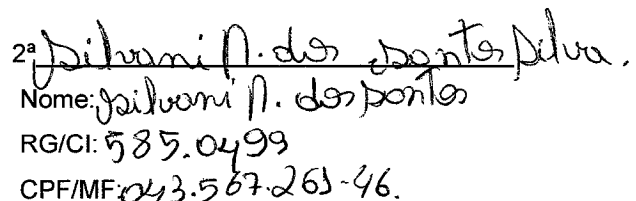 2ª Silvani N. dos Santos Silva.
Nome: Silvani N. dos Santos
RG/CI: 585.0499
CPF/MF: 043.567.261-46.